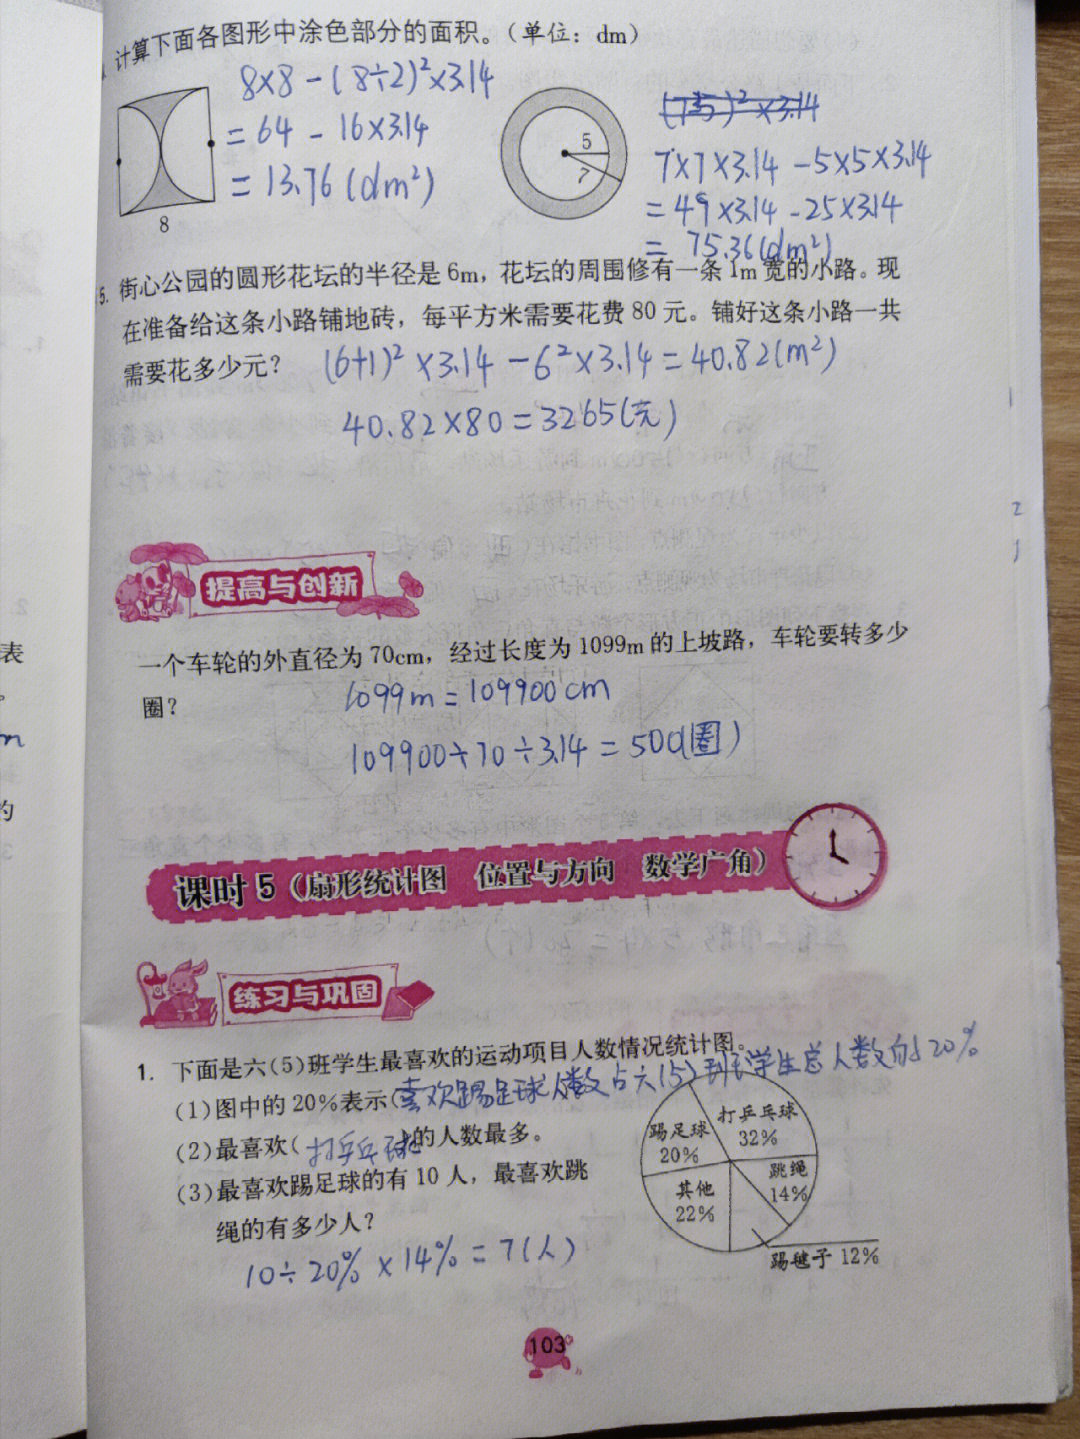 计算下面各图形中涂色部分的面积。(单位：dm)
8×8-(8÷2)²×3.14
=64-16×3.14
=13.76(dm²)
8
5
7
7×7×3.14-5×5×3.14
=49×3.14-25×3.14
=75.36(dm²)
5. 街心公园的圆形花坛的半径是6m，花坛的周围修有一条1m宽的小路。现
在准备给这条小路铺地砖，每平方米需要花费80元。铺好这条小路一共
需要花多少元？
(6+1)²×3.14-6²×3.14=40.82(m²)
40.82×80=3265(元)
提高与创新
一个车轮的外直径为70cm，经过长度为1099m的上坡路，车轮要转多少
圈？
1099m=109900cm
109900÷70÷3.14=500(圈)
课时5(扇形统计图 位置与方向 数学广角)
练习与巩固
1. 下面是六(5)班学生最喜欢的运动项目人数情况统计图。
(1)图中的20%表示(喜欢踢足球人数占六(5)班学生总人数的20%
(2)最喜欢(打乒乓球)的人数最多。
(3)最喜欢踢足球的有10人，最喜欢跳
绳的有多少人？
10÷20%×14%=7(人)
打乒乓球
32%
踢足球
20%
跳绳
14%
其他
22%
踢毽子 12%
103
表
m
的